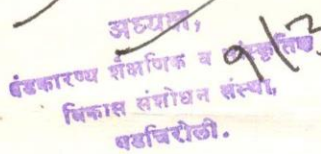 अध्यक्ष,
दंडकारण्य शैक्षणिक व सांस्कृतिक
विकास संशोधन संस्था,
गडचिरोली.